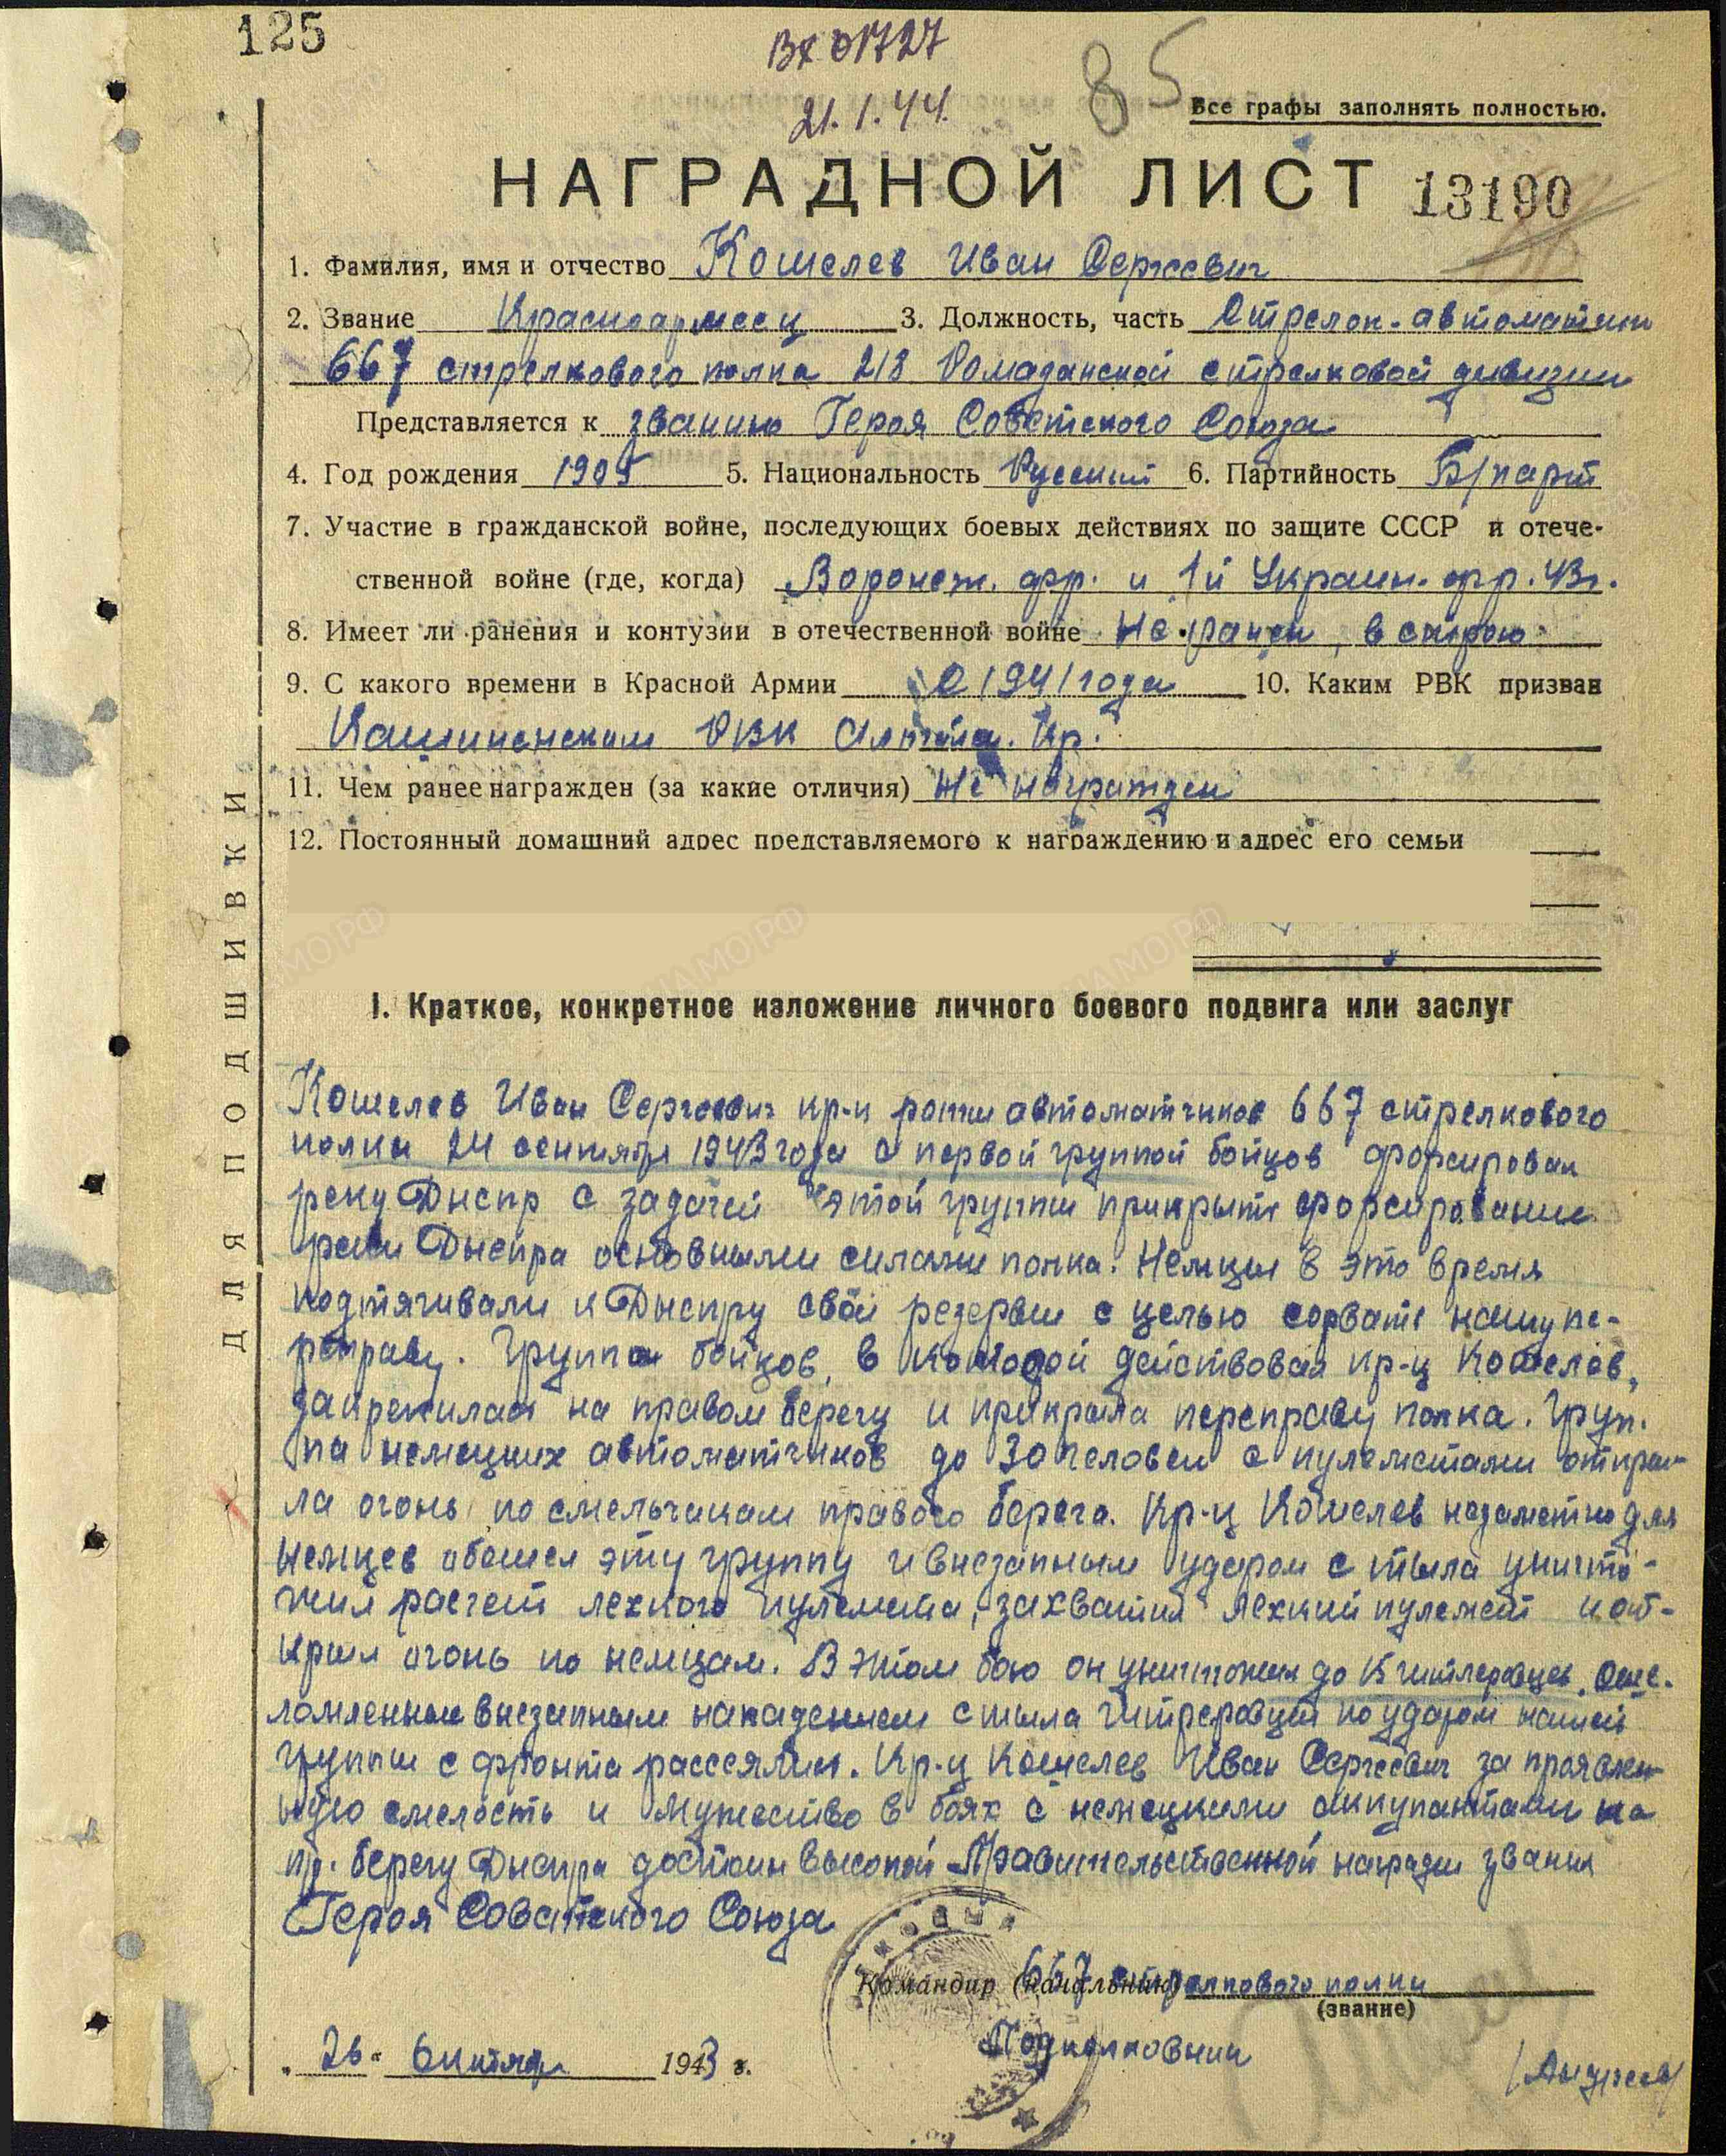 125
Вх 01727
21.1.44.
85
Все графы заполнять полностью.
НАГРАДНОЙ ЛИСТ 13190
1. Фамилия, имя и отчество Кошелев Иван Сергеевич
2. Звание Красноармеец 3. Должность, часть Стрелок-автоматчик
667 стрелкового полка 218 Ромаданской стрелковой дивизии
Представляется к званию Героя Советского Союза
4. Год рождения 1905 5. Национальность Русский 6. Партийность Б/парт
7. Участие в гражданской войне, последующих боевых действиях по защите СССР и отече-
ственной войне (где, когда) Воронеж. фр. и 1й Украин. фр. 43г.
8. Имеет ли ранения и контузии в отечественной войне Не ранен, в строю
9. С какого времени в Красной Армии С 1941 года 10. Каким РВК призван
РВК Кр.
11. Чем ранее награжден (за какие отличия) Не награжден
12. Постоянный домашний адрес представляемого к награждению и адрес его семьи
ДЛЯ ПОДШИВКИ
I. Краткое, конкретное изложение личного боевого подвига или заслуг
Кошелев Иван Сергеевич кр-ц роты автоматчиков 667 стрелкового
полка 24 сентября 1943 года с первой группой бойцов форсировал
реку Днепр с задачей этой группы прикрыть форсирование
реки Днепра основными силами полка. Немцы в это время
подтягивали к Днепру свои резервы с целью сорвать нашу пе-
реправу. Группа бойцов, в которой действовал кр-ц Кошелев,
закрепилась на правом берегу и прикрыла переправу полка. Груп-
па немецких автоматчиков до 30 человек с пулеметами откры-
ла огонь по смельчакам правого берега. Кр-ц Кошелев незаметно для
немцев обошел эту группу и внезапным ударом с тыла уничто-
жил расчет лехкого пулемета, захватил лехкий пулемет и от-
крыл огонь по немцам. В этом бою он уничтожил до 15 гитлеровцев. Оше-
ломленные внезапным нападением с тыла гитлеровцы по ударом нашей
группы с фронта рассеялись. Кр-ц Кошелев Иван Сергеевич за проявлен-
ную смелость и мужество в боях с немецкими оккупантами на
пр. берегу Днепра достоин высокой Правительственной награды звания
Героя Советского Союза
Командир (начальник) 667 стрелкового полка
(звание)
Подполковник
/Андреев/
„26" октября 1943 г.